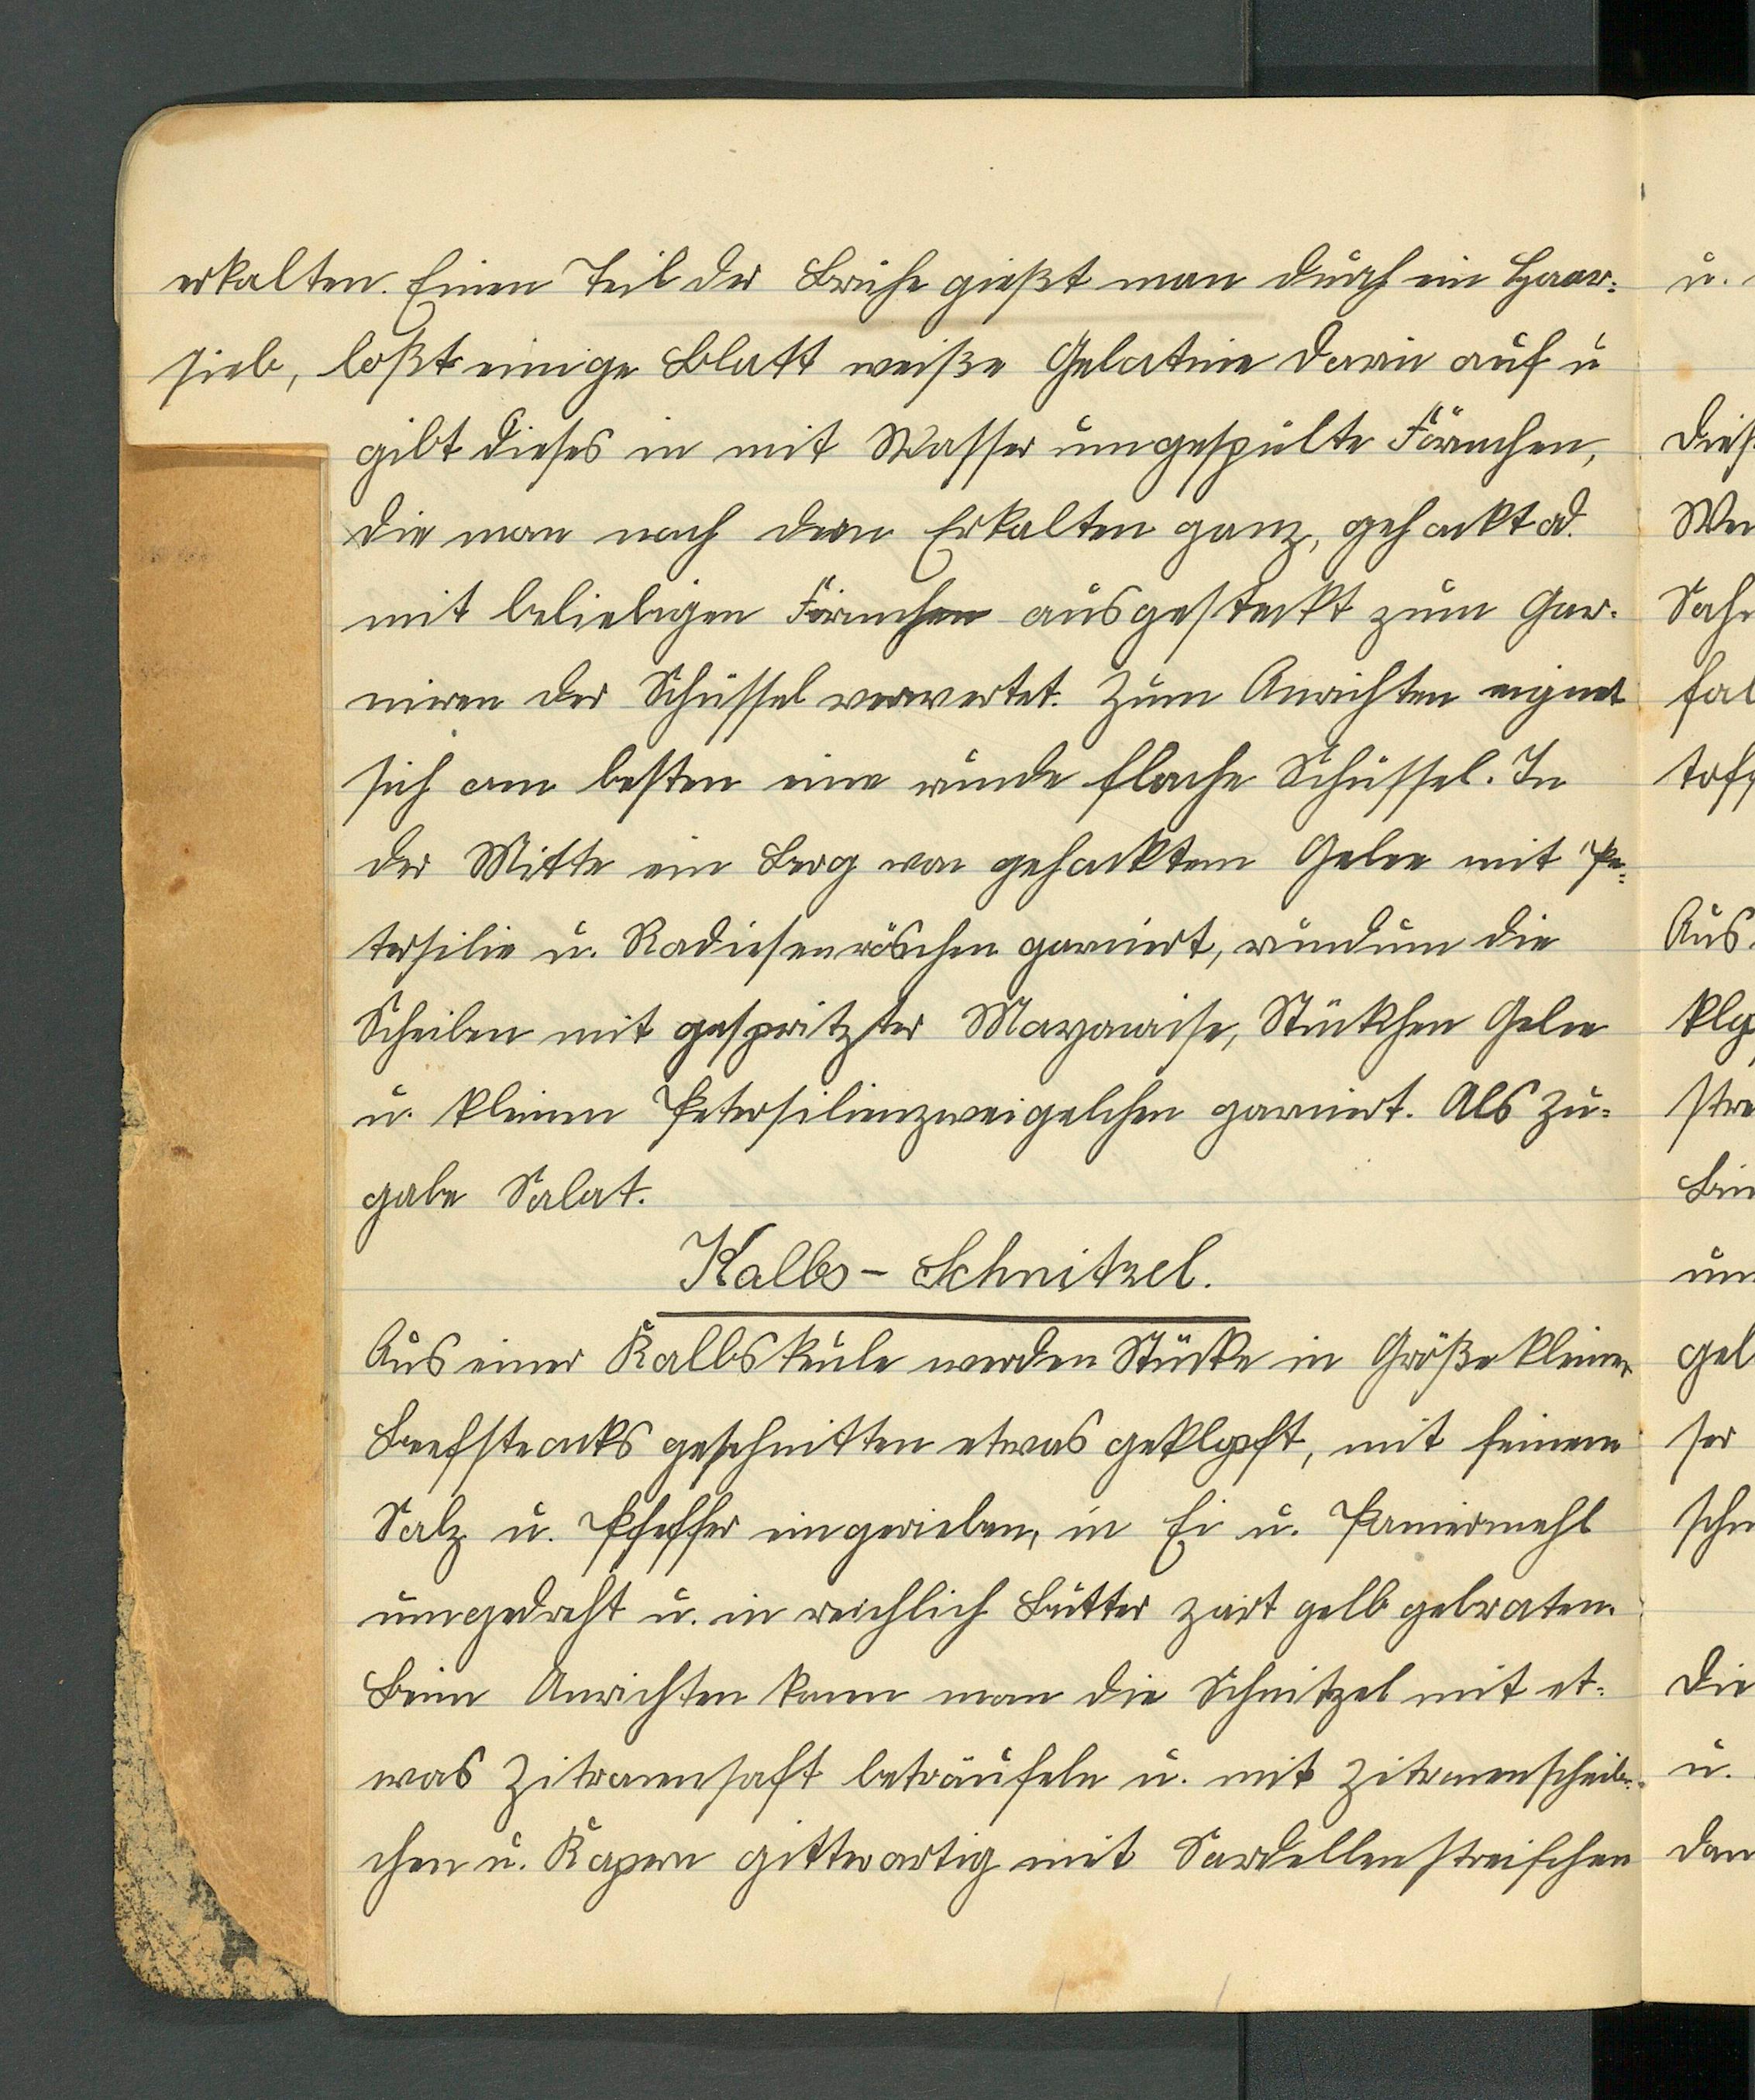 erkalten. Einen Teil der Brühe gießt man durch ein Haar-
sieb, loßt einige Blatt weiße Gelatine darin auf u
gibt dieses in mit Wasser umgespülte Förmchen,
die man nach dem Erkalten ganz, gehackt od.
mit beliebigen Förmchen ausgesteckt zum Gar-
niren der Schüssel verwertet. Zum Anrichten eignet
sich am besten eine runde flache Schüssel. In
der Mitte ein Berg von gehacktem Gelee mit Pe-
tersilie u. Radiesenröschen garniert, rundum die
Scheiben mit gespritzter Mayonaise, Stückchen Gelee
u. kleinen Petersilienzweigelchen garniert. Als Zu-
gabe Salat.
Kalbs-Schnitzel.
Aus einer Kalbskeule werden Stücke in Größe kleiner
Beefsteaks geschnitten etwas geklopft, mit feinem
Salz u. Pfeffer eingerieben, in Ei u. Paniermehl
umgedreht u. in reichlich Butter zart gelb gebraten.
Beim Anrichten kann man die Schnitzel mit et-
was Zitronensaft beträufeln u. mit Zitronenscheib-
chen u. Kapern gitterartig mit Sardellenstreifchen
u.
dies
We
Sah
fal
tof
Aus
klo
stre
Bin
um
gel
ser
schn
Die
u.
dan